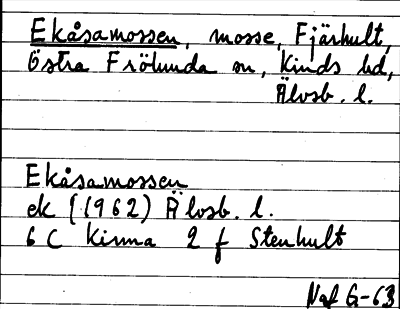 Ekåsamossen, mosse, Fjärhult,
Östra Frölunda sn, Kinds hd,
Älvsb. l.
Ekåsamossen
ek (1962) Älvsb. l.
6 C Kinna 2 f Stenhult
G-63